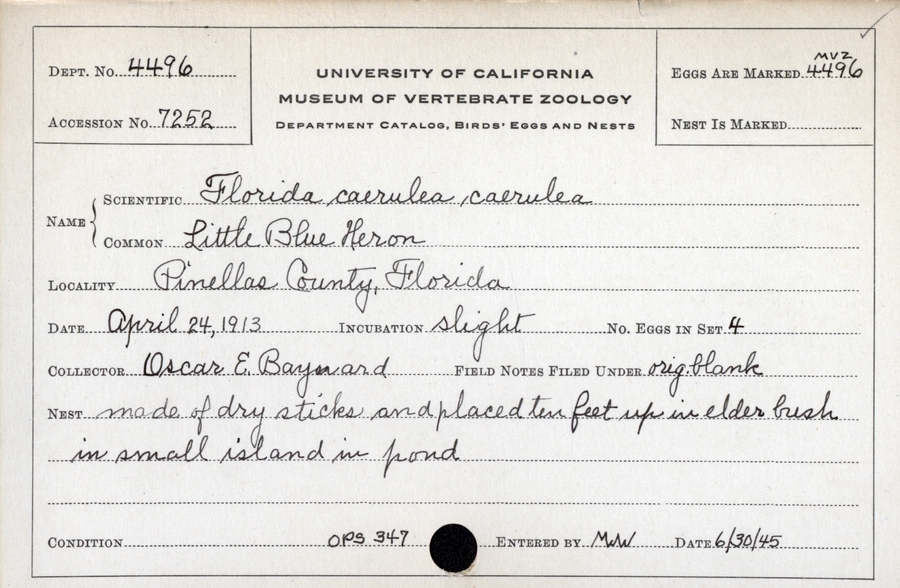 DEPT. No. 4496
ACCESSION No. 7252
UNIVERSITY OF CALIFORNIA
MUSEUM OF VERTEBRATE ZOOLOGY
DEPARTMENT CATALOG, BIRDS' EGGS AND NESTS
MVZ
EGGS ARE MARKED 4496
NEST IS MARKED
NAME
SCIENTIFIC Florida caerulea caerulea
COMMON Little Blue Heron
LOCALITY Pinellas County, Florida
DATE April 24, 1913 INCUBATION slight No. EGGS IN SET 4
COLLECTOR Oscar E. Baynard FIELD NOTES FILED UNDER orig. blank
NEST made of dry sticks and placed ten feet up in elder bush
in small island in pond
CONDITION OPS 347 ENTERED BY MWW DATE 6/30/45